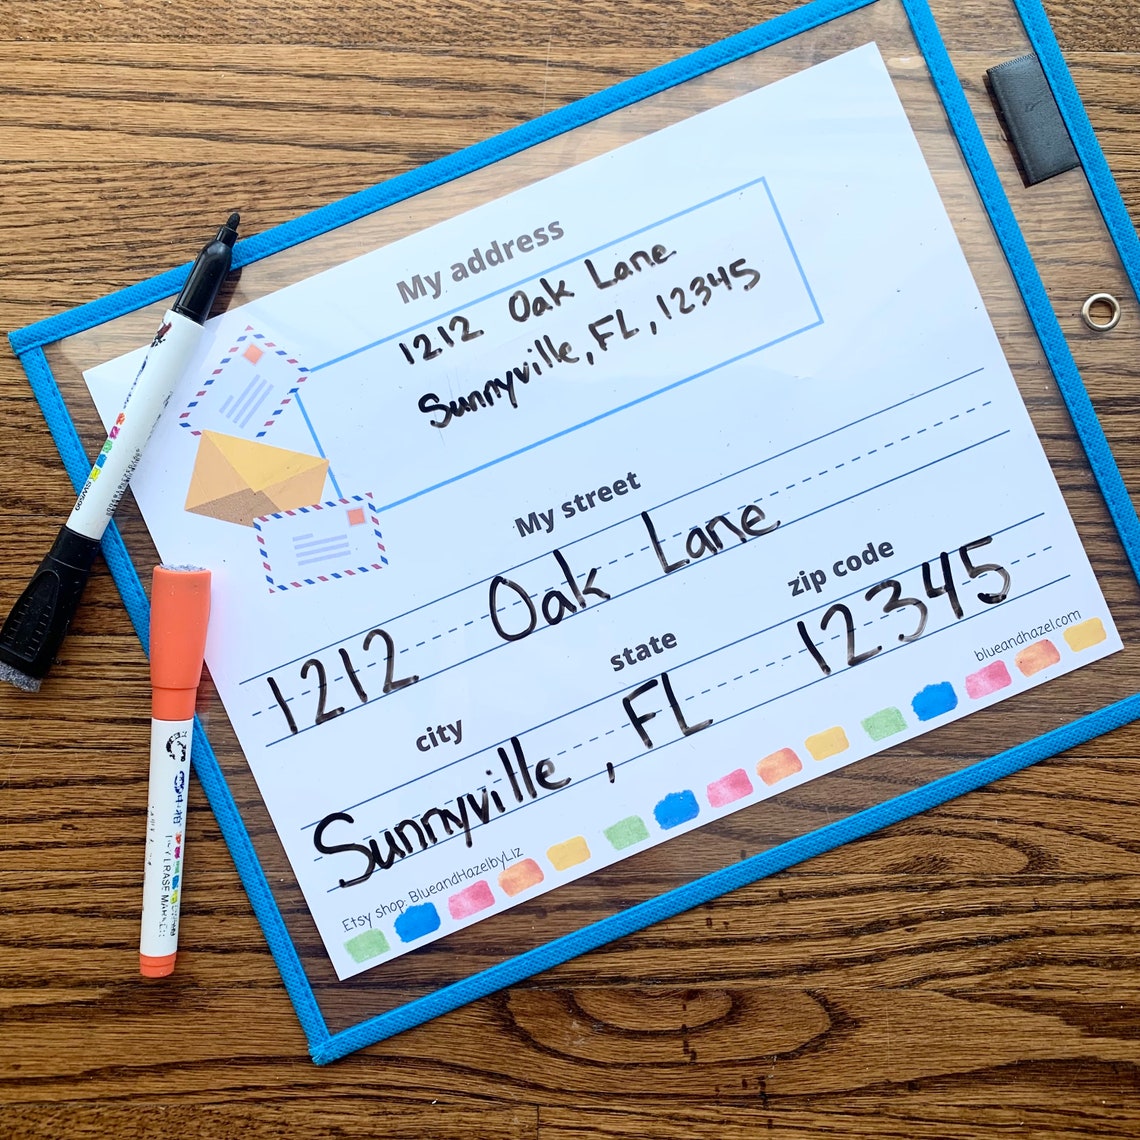 My address
1212 Oak Lane
Sunnyville, FL, 12345
My street
1212 Oak Lane
city state zip code
Sunnyville, FL 12345
Etsy shop: BlueandHazelbyLiz blueandhazel.com
ERASE MARKER